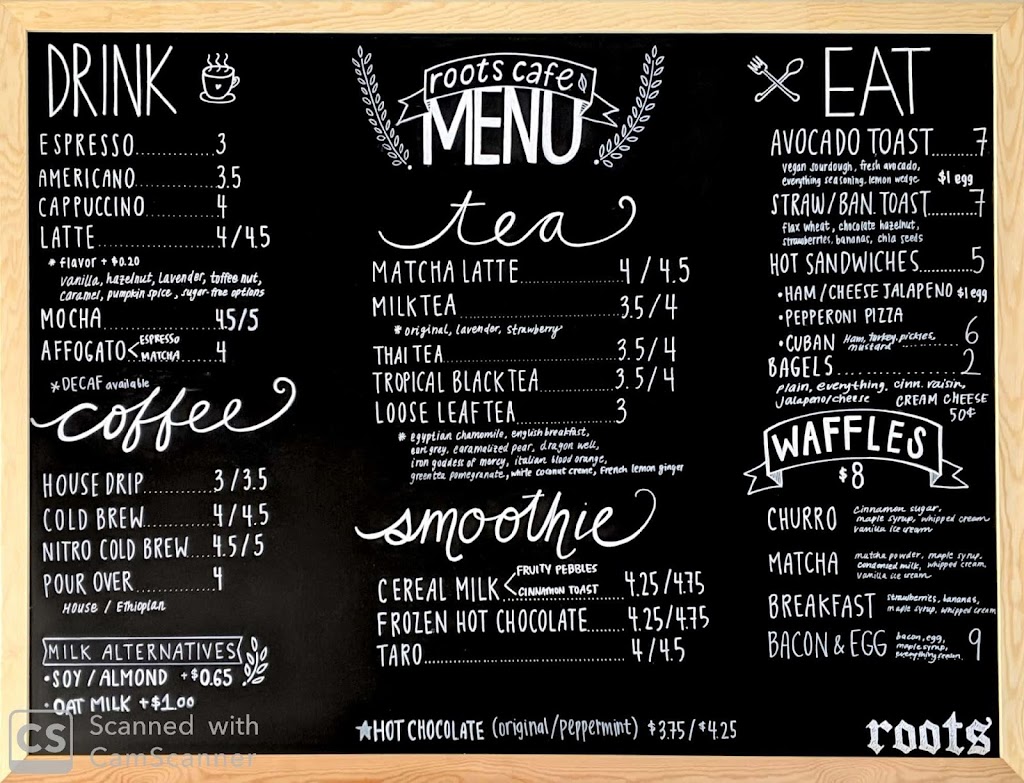 DRINK
ESPRESSO 3
AMERICANO 3.5
CAPPUCCINO 4
LATTE 4/4.5
* flavor + $0.20
vanilla, hazelnut, lavender, toffee nut,
caramel, pumpkin spice, sugar-free options
MOCHA 4.5/5
AFFOGATO < ESPRESSO
MATCHA 4
*DECAF available
coffee
HOUSE DRIP 3/3.5
COLD BREW 4/4.5
NITRO COLD BREW 4.5/5
POUR OVER 4
House / Ethiopian
MILK ALTERNATIVES
•SOY / ALMOND +$0.65
•OAT MILK +$1.00
roots cafe
MENU
tea
MATCHA LATTE 4/4.5
MILK TEA 3.5/4
* original, lavender, strawberry
THAI TEA 3.5/4
TROPICAL BLACK TEA 3.5/4
LOOSE LEAF TEA 3
* egyptian chamomile, english breakfast,
earl grey, caramelized pear, dragon well,
iron goddess of mercy, italian blood orange,
green tea pomegranate, white coconut creme, french lemon ginger
smoothie
CEREAL MILK < FRUITY PEBBLES
CINNAMON TOAST 4.25/4.75
FROZEN HOT CHOCOLATE 4.25/4.75
TARO 4/4.5
★HOT CHOCOLATE (original/peppermint) $3.75/$4.25
EAT
AVOCADO TOAST 7
vegan sourdough, fresh avocado,
everything seasoning, lemon wedge $1 egg
STRAW/BAN. TOAST 7
flax wheat, chocolate hazelnut,
strawberries, bananas, chia seeds
HOT SANDWICHES 5
•HAM/CHEESE JALAPENO $1 egg
•PEPPERONI PIZZA
•CUBAN Ham, turkey, pickles,
mustard 6
BAGELS 2
plain, everything, cinn. raisin,
jalapeno/cheese CREAM CHEESE
50¢
WAFFLES
$8
CHURRO cinnamon sugar,
maple syrup, whipped cream
vanilla ice cream
MATCHA matcha powder, maple syrup,
condensed milk, whipped cream,
vanilla ice cream
BREAKFAST strawberries, bananas,
maple syrup, whipped cream
BACON & EGG bacon, egg,
maple syrup,
everything season. 9
roots
CS Scanned with
CamScanner